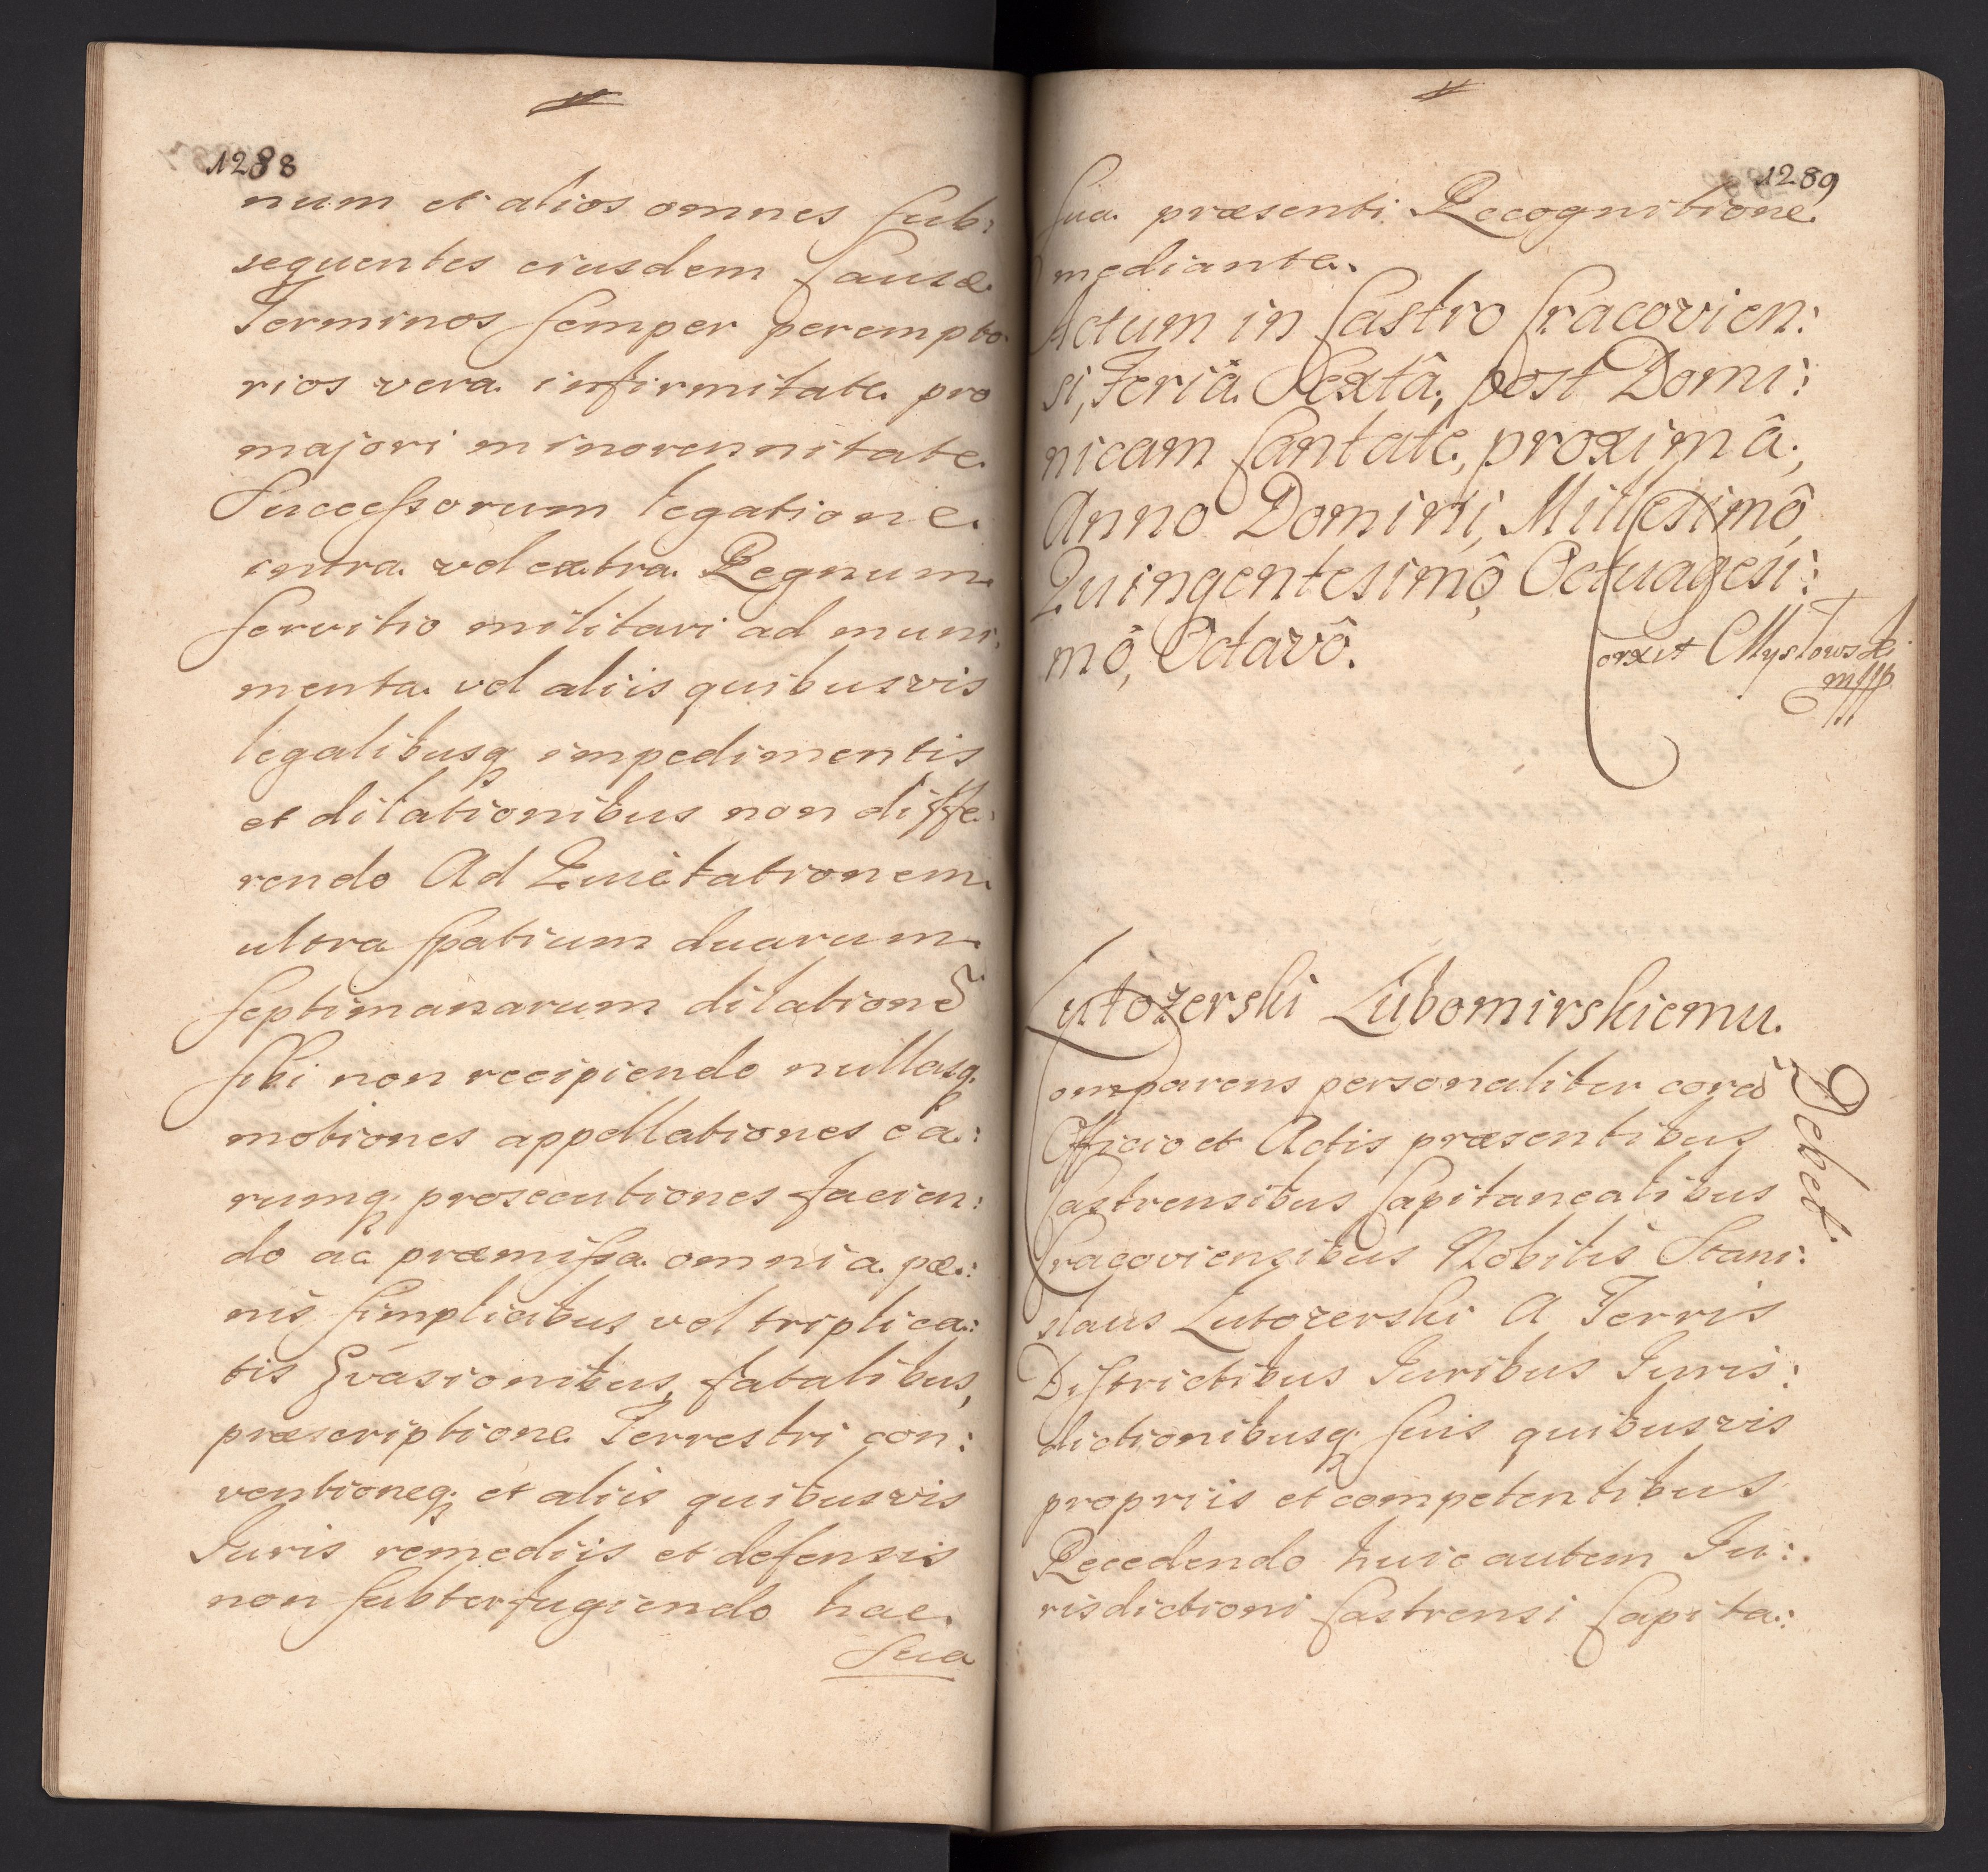 1288
num et alios omnes sub:
sequentes eiusdem Causæ
Terminos semper perempto
rios vera infirmitate pro
majori minorennitate
Successorum legatione
intra vel extra Regnum
servitio militari ad muni,
menta vel aliis quibusvis
legalibusq, impedimentis
et dilationibus non diffe:
rendo Ad Quietationem
ultra spatium duarum
septimanarum dilatione
sibi non recipiendo nullasq,
motiones appellationes ea:
rumq, prosecutiones facien:
do ac præmissa omnia pæ:
nis simplicibus vel triplica:
tis Evasionibus, fatalibus,
præscriptione Terrestri con:
ventioneq, et aliis quibusvis
Juris remediis et defensis
non subterfugiendo hac
Sua
1289
Sua præsenti Recognitione
mediante.
Actum in Castro Cracovien:
si, Feriâ Sextâ, post Domi:
nicam Cantate, proximâ,
Anno Domini, Millesimô,
Quingentesimô, Octuagesi:
mô, Octavô.
orxit Mystowski
mpp
Lutozerski Lubomirskiemu.
Debet.
Comparens personaliter cora
Officio et Actis præsentibus
Castrensibus Capitanealibus
Cracoviensibus Nobilis Stani:
slaus Lutozerski A Terris
Districtibus Juribus Juris:
dictionibusq, suis quibusvis
propriis et competentibus
Recedendo huic autem Ju:
risdictioni Castrensi Capita: